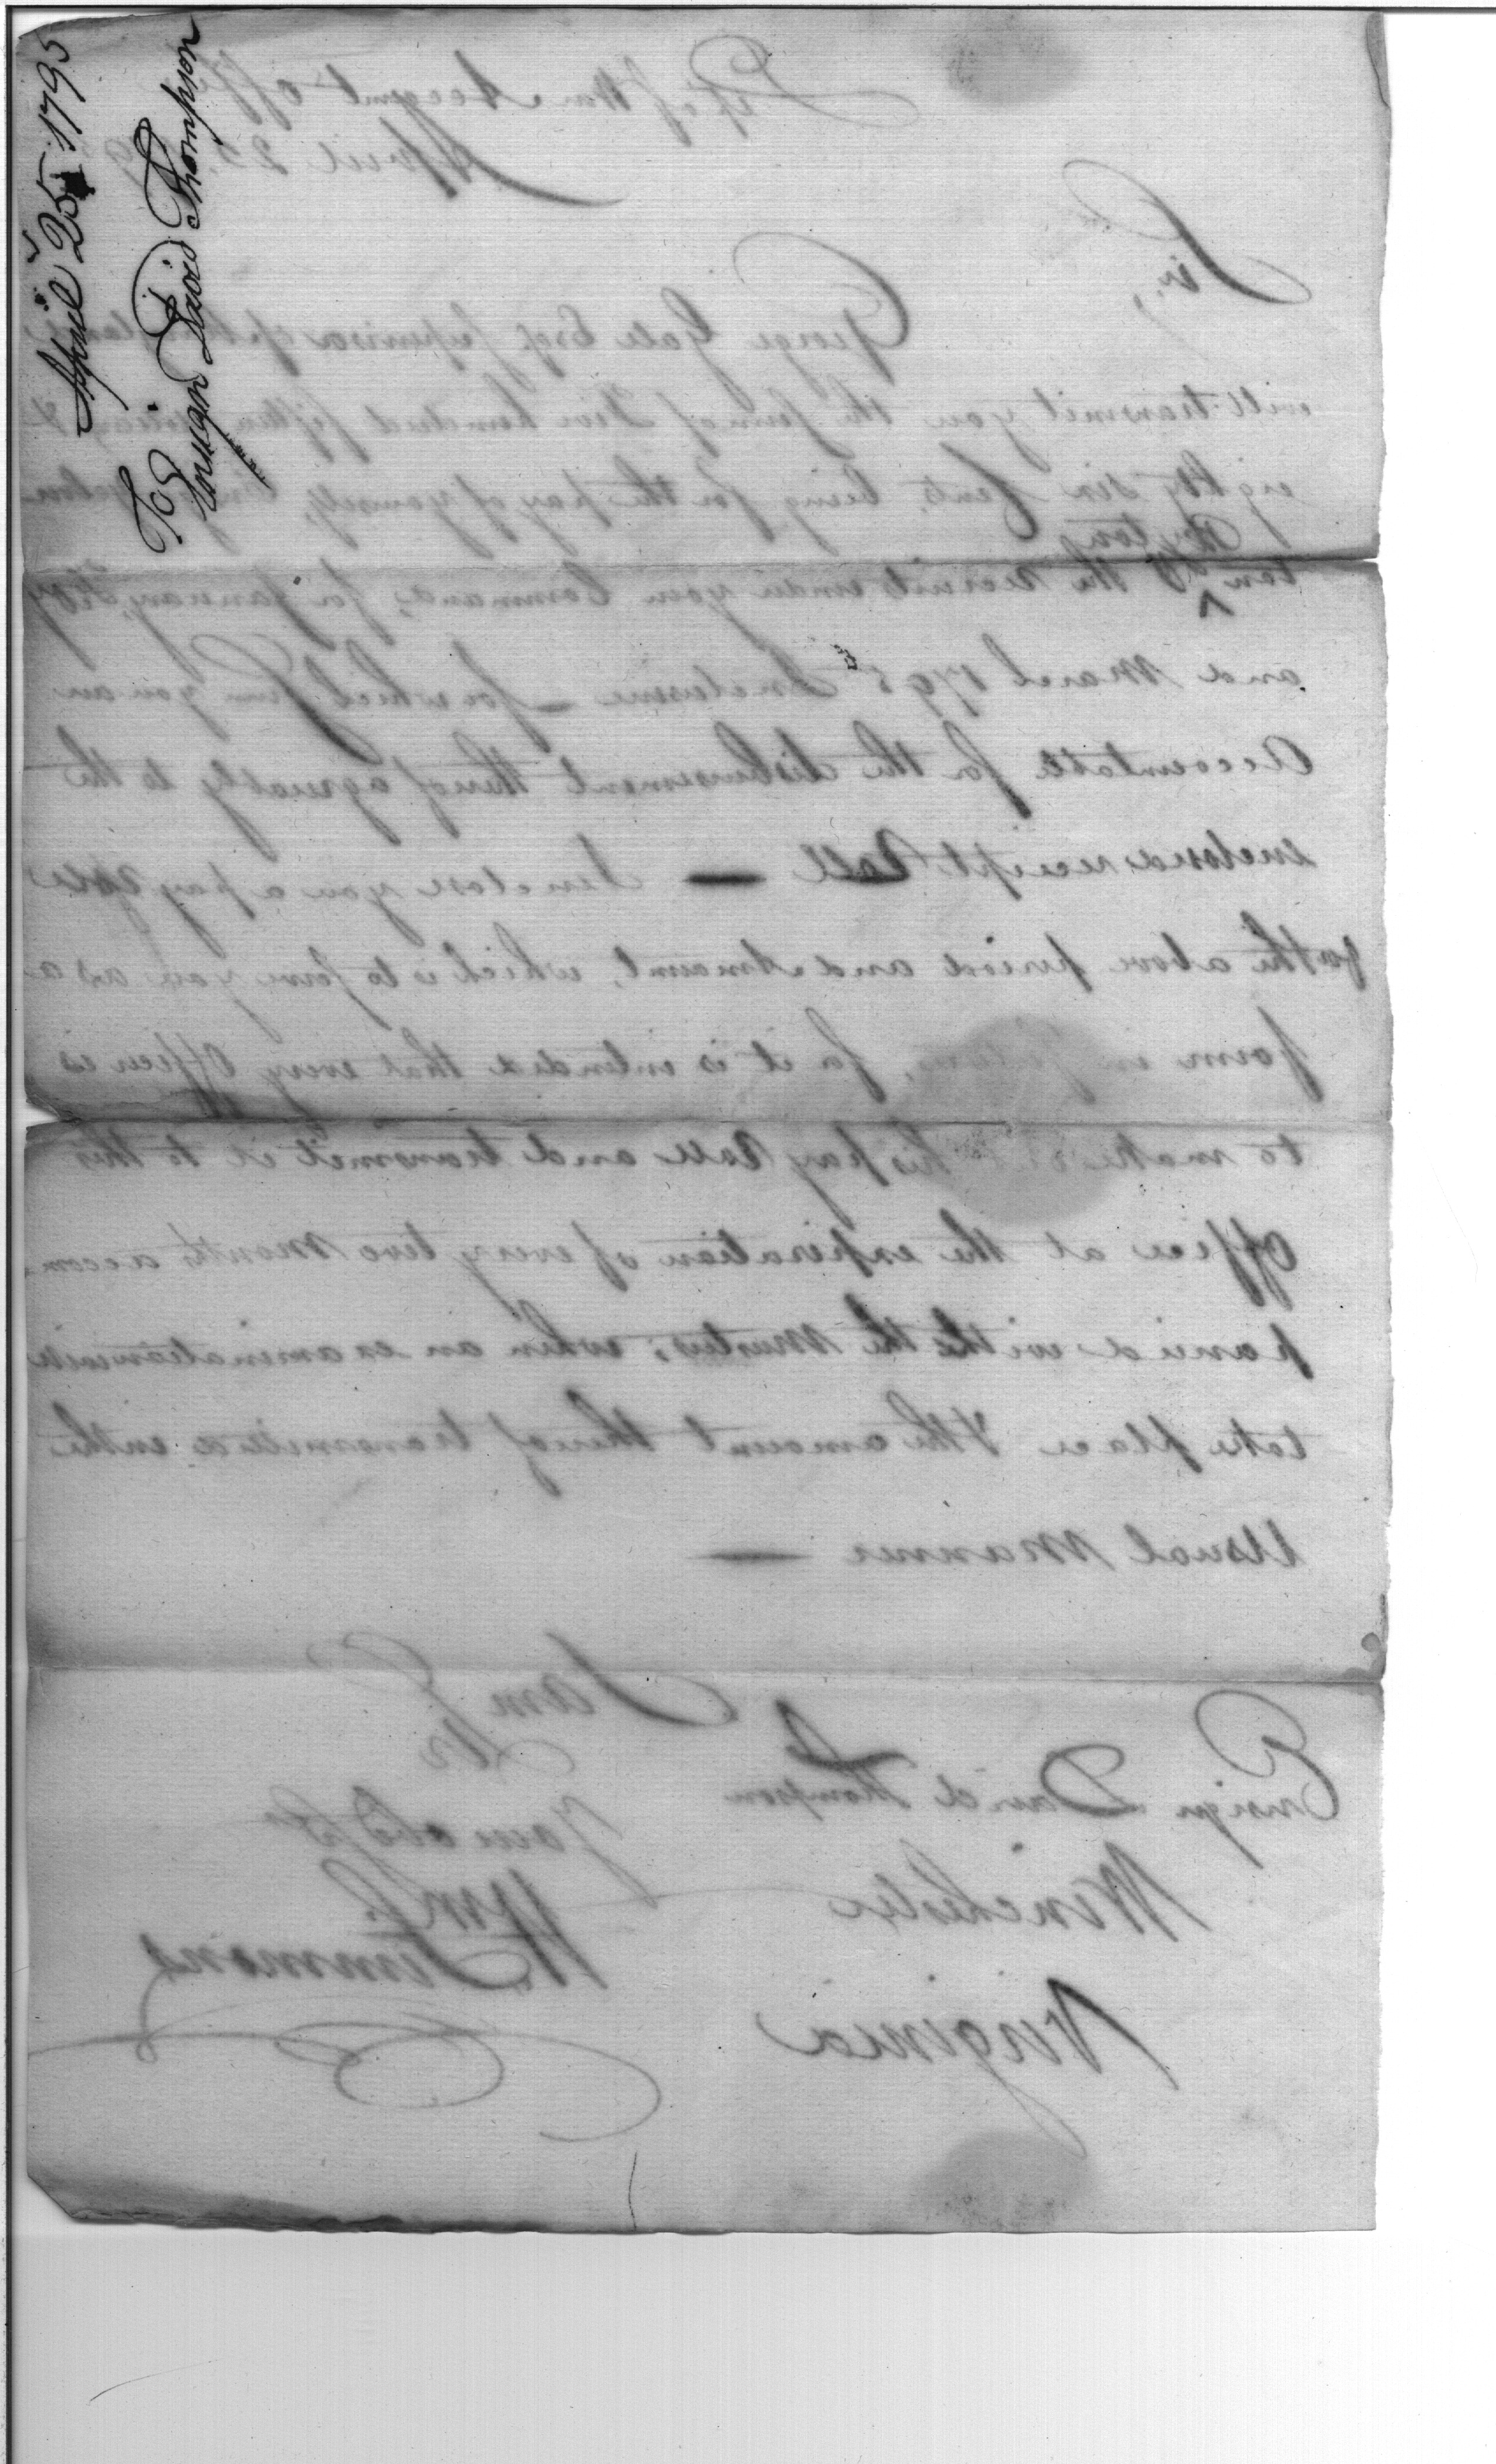 April 25 1795
To
Ensign David Thompson
Dept of War Accompt Office
April 25
Sir,
George Gale Esqr Supervisor of
will transmit you the sum of hundred fifteen &
eighty six Cents, being for the pay of yourself,
the recruits under your Command, for January, Feby
and March 1795 Inclusive — for which you an
Accountable for the disbursement thereof agreeably to the
enclosed receipt Roll — I enclose you a pay Roll
for the above period and Amount, which is to serve you as a
form in , for it is intended that every Officer is
to make his pay Roll and transmit it to this
Office at the expiration of every two Months accom-
panied with the Musters; when an examination will
take place & the amount thereof transmitted in the
Usual Manner —
I am
Sir
Your Obt St
Wm Simmons
Ensign David Thompson
Winchester
Virginia